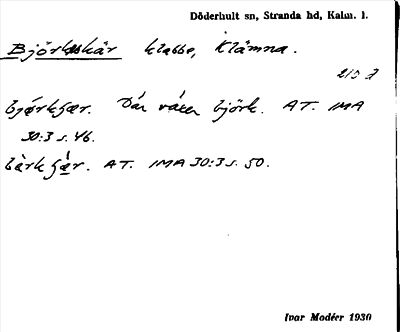 Döderhult sn, Stranda hd, Kalm. l.
Björkskär klabbe, Klämna.
215 J
Bjørkʃær. Där växer björk. AT. IMA
30:3 s. 46.
bàrkʃær. AT. IMA 30:3 s. 50.
Ivar Modéer 1930